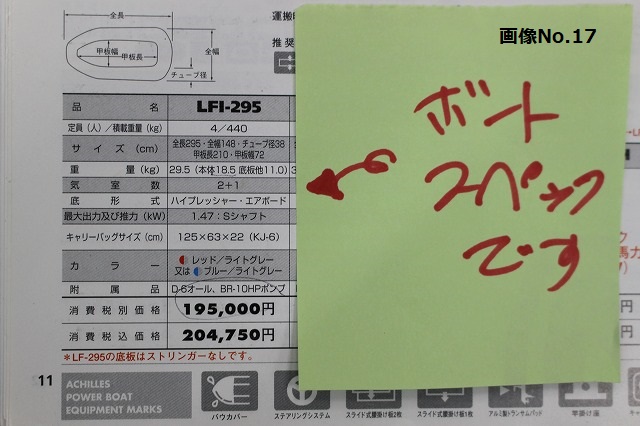 画像No.17
全長
運搬時
甲板幅
全幅
甲板長
推奨
チューブ径
品 名 LFI-295
定員(人)/積載重量(kg) 4/440
サイズ(cm) 全長295・全幅148・チューブ径38
甲板長210・甲板幅72
重 量(kg) 29.5(本体18.5 底板他11.0)
気室数 2+1
底形式 ハイプレッシャー・エアボード
最大出力及び推力(kW) 1.47:Sシャフト
キャリーバッグサイズ(cm) 125×63×22(KJ-6)
カラー レッド/ライトグレー
又は ブルー/ライトグレー
付属品 D-6オール、BR-10HPポンプ
消費税別価格 195,000円
消費税込価格 204,750円
*LF-295の底板はストリンガーなしです。
ボート
スペック
です
11
ACHILLES
POWER BOAT
EQUIPMENT MARKS
バウカバー
ステアリングシステム
スライド式腰掛け板2枚
スライド式腰掛け板1枚
アルミ製トランサムパッド
竿掛け座